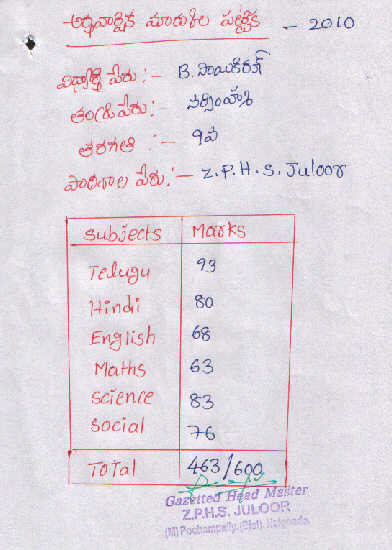 అర్ధవార్షిక మార్కుల పట్టిక - 2010
విద్యార్థి పేరు :- B. సాయికిరణ్
తండ్రి పేరు :- నర్సింహ్మ
తరగతి :- 9వ
పాఠశాల పేరు :- Z.P.H.S. Juloor
Subjects Marks
Telugu 93
Hindi 80
English 68
Maths 63
Science 83
Social 76
Total 463/600
Gazetted Head Master
Z.P.H.S. JULOOR
(M) Pochampally, (Dist). Nalgonda.